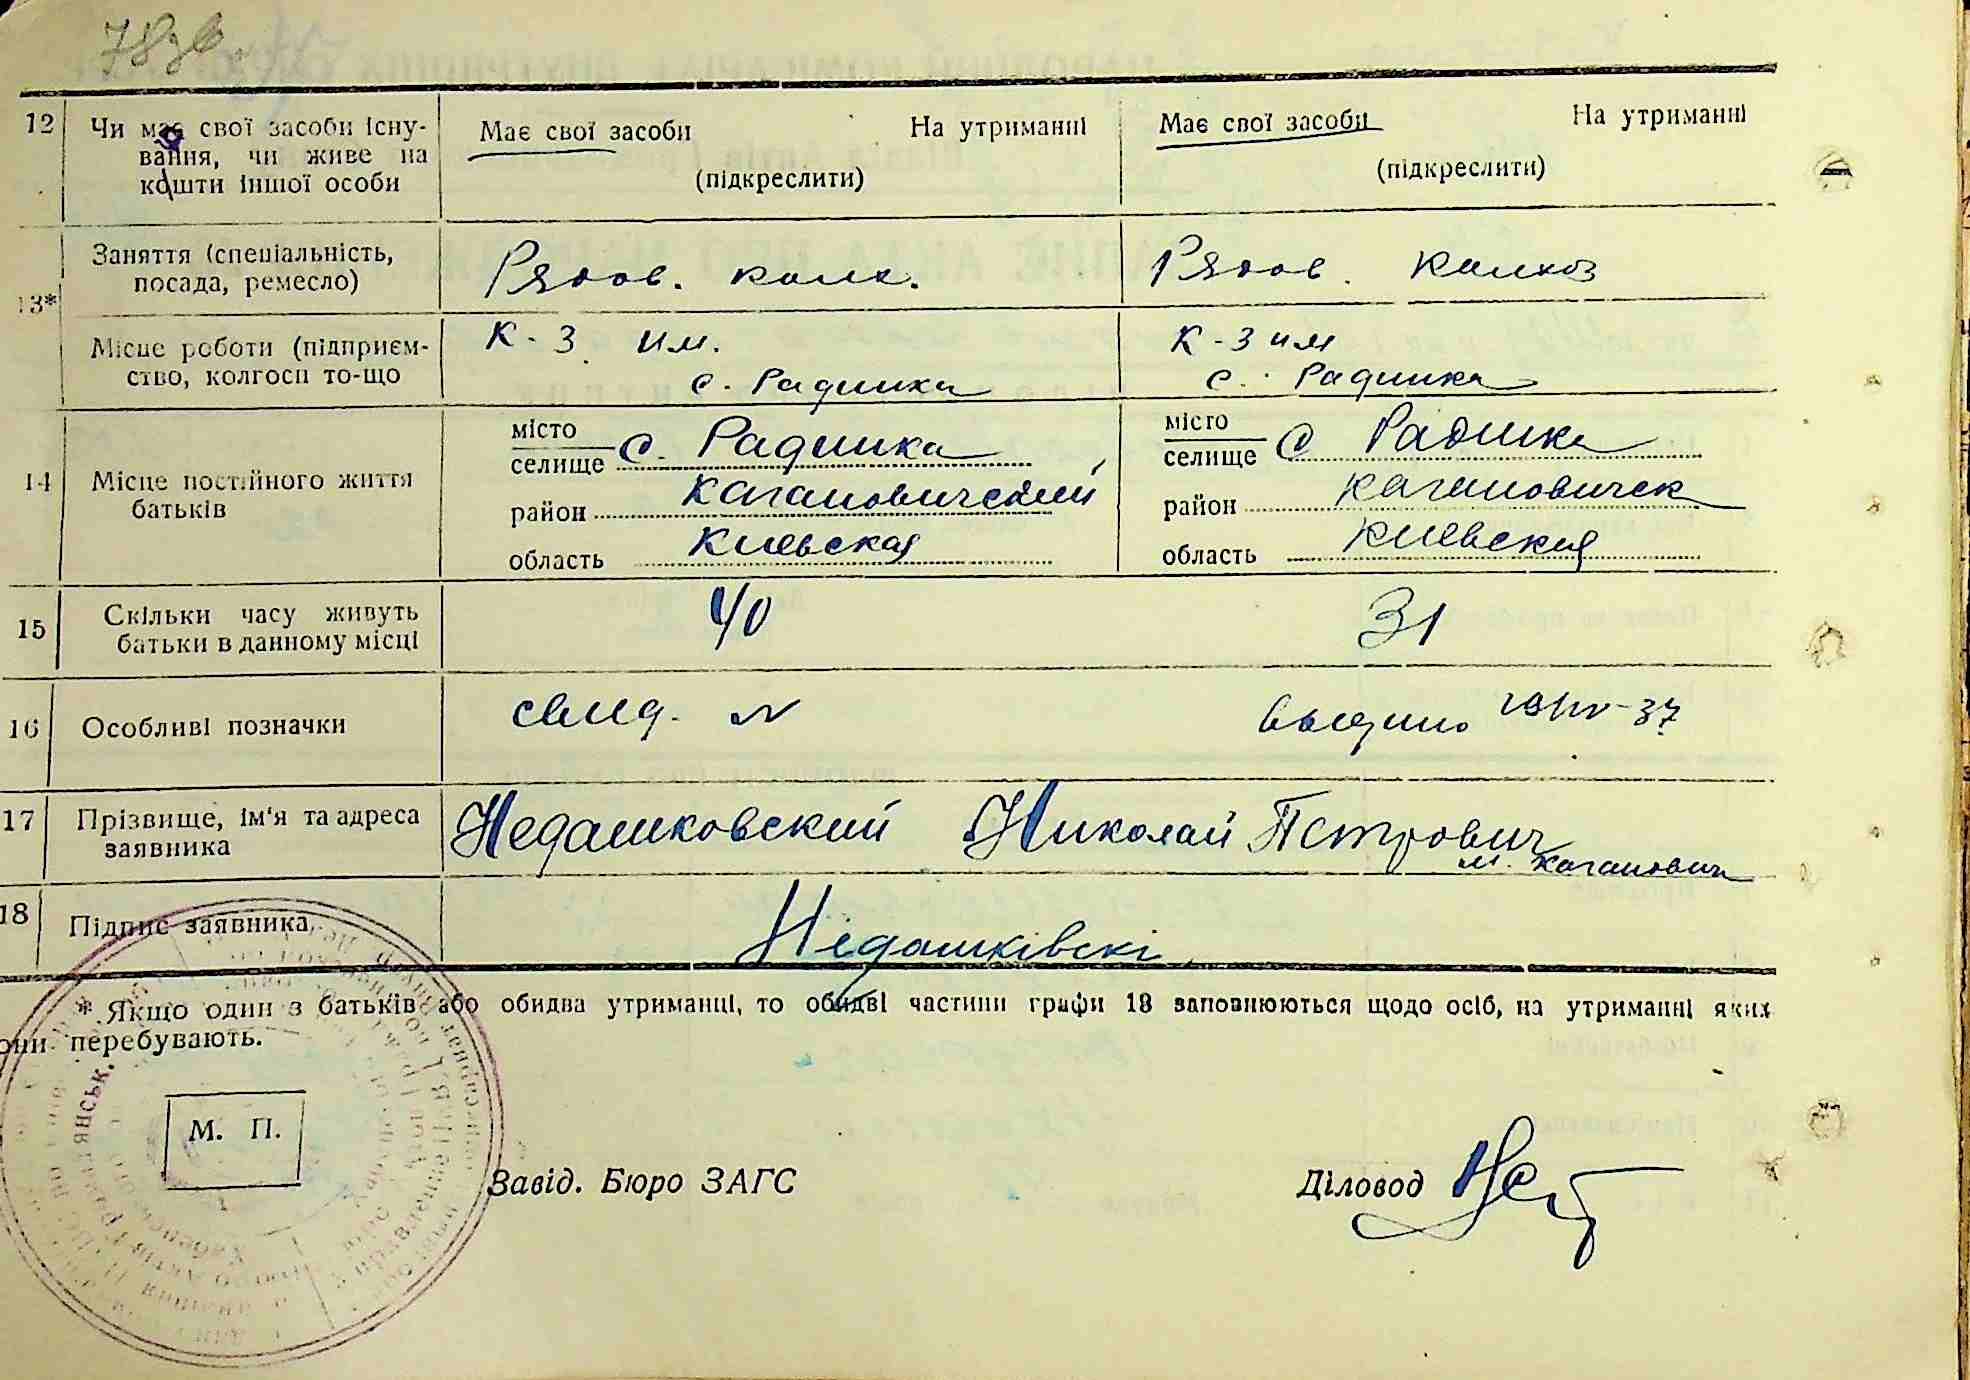 12 Чи має свої засоби існу-
вання, чи живе на
кошти іншої особи
Має свої засоби На утриманні
(підкреслити)
Має свої засоби На утриманні
(підкреслити)
13*
Заняття (спеціальність,
посада, ремесло)
Рядов. колх.
Рядов. колхоз
Місце роботи (підприєм-
ство, колгосп то-що
К-з им.
с. Радинка
К-з им
с. Радинка
14 Місце постійного життя
батьків
місто
селище с. Радинка
район Кагановический
область Киевская
місто
селище с Радинка
район Кагановическ
область Киевская
15 Скільки часу живуть
батьки в данному місці
40 31
16 Особливі позначки
свид. N выдано 19/IV-37
17 Прізвище, ім'я та адреса
заявника
Недашковский Николай Петрович
м. Каганович
18 Підпис заявника
Недашківскі
* Якщо один з батьків або обидва утриманці, то обидві частини графи 13 заповнюються щодо осіб, на утриманні яких
они перебувають.
М. П.
Завід. Бюро ЗАГС Діловод